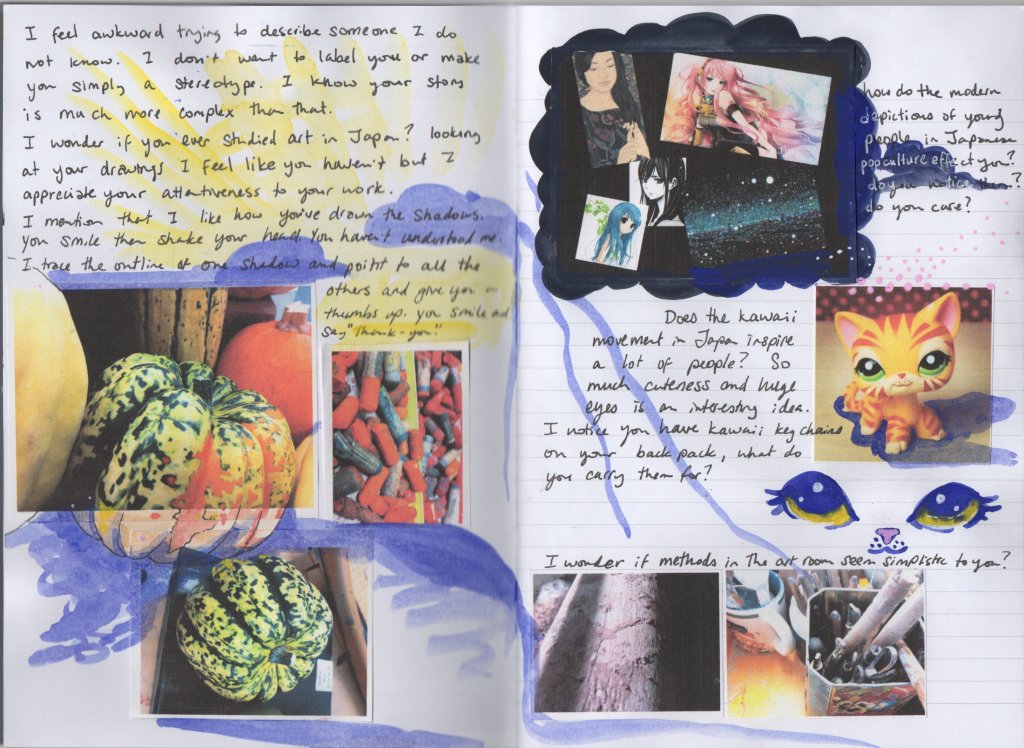 I feel awkward trying to describe someone I do
not know. I don't want to label you or make
you simply a stereotype. I know your story
is much more complex than that.
I wonder if you ever studied art in Japan? looking
at your drawings I feel like you haven't but I
appreciate your attentiveness to your work.
I mention that I like how you've drawn the shadows.
You smile then shake your head. You haven't understood me.
I trace the outline of one shadow and point to all the
others and give you a
thumbs up. you smile and
say "thank-you!"
how do the modern
depictions of young
people in Japanese
pop culture effect you?
do you notice them?
do you care?
Does the kawaii
movement in Japan inspire
a lot of people? So
much cuteness and huge
eyes is an interesting idea.
I notice you have kawaii key chains
on your back pack, what do
you carry them for?
I wonder if methods in the art room seem simplistic to you?